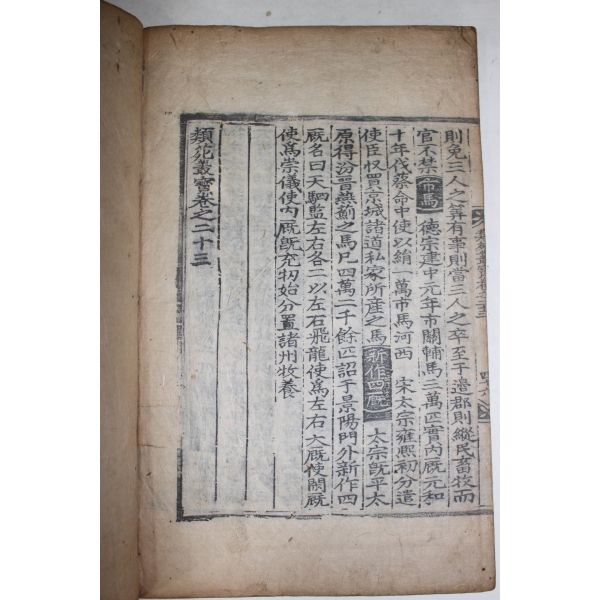 則免三人之算有事則當三人之卒至于邉郡則縱民畜牧而
官不禁 市馬 德宗建中元年市關輔馬三萬匹實内厩元和
十年伐蔡命中使以絹一萬市馬河西 宋太宗雍熙初分遣
使臣收買京城諸道私家所産之馬 新作四厩 太宗旣平太
原得汾晉燕薊之馬凡四萬二千餘匹詔于景陽門外新作四
厩名曰天駟監左右各二以左右飛龍使爲左右天厩使閑厩
使爲崇儀使内厩旣充牣始分置諸州牧養
類苑叢寶卷之二十三